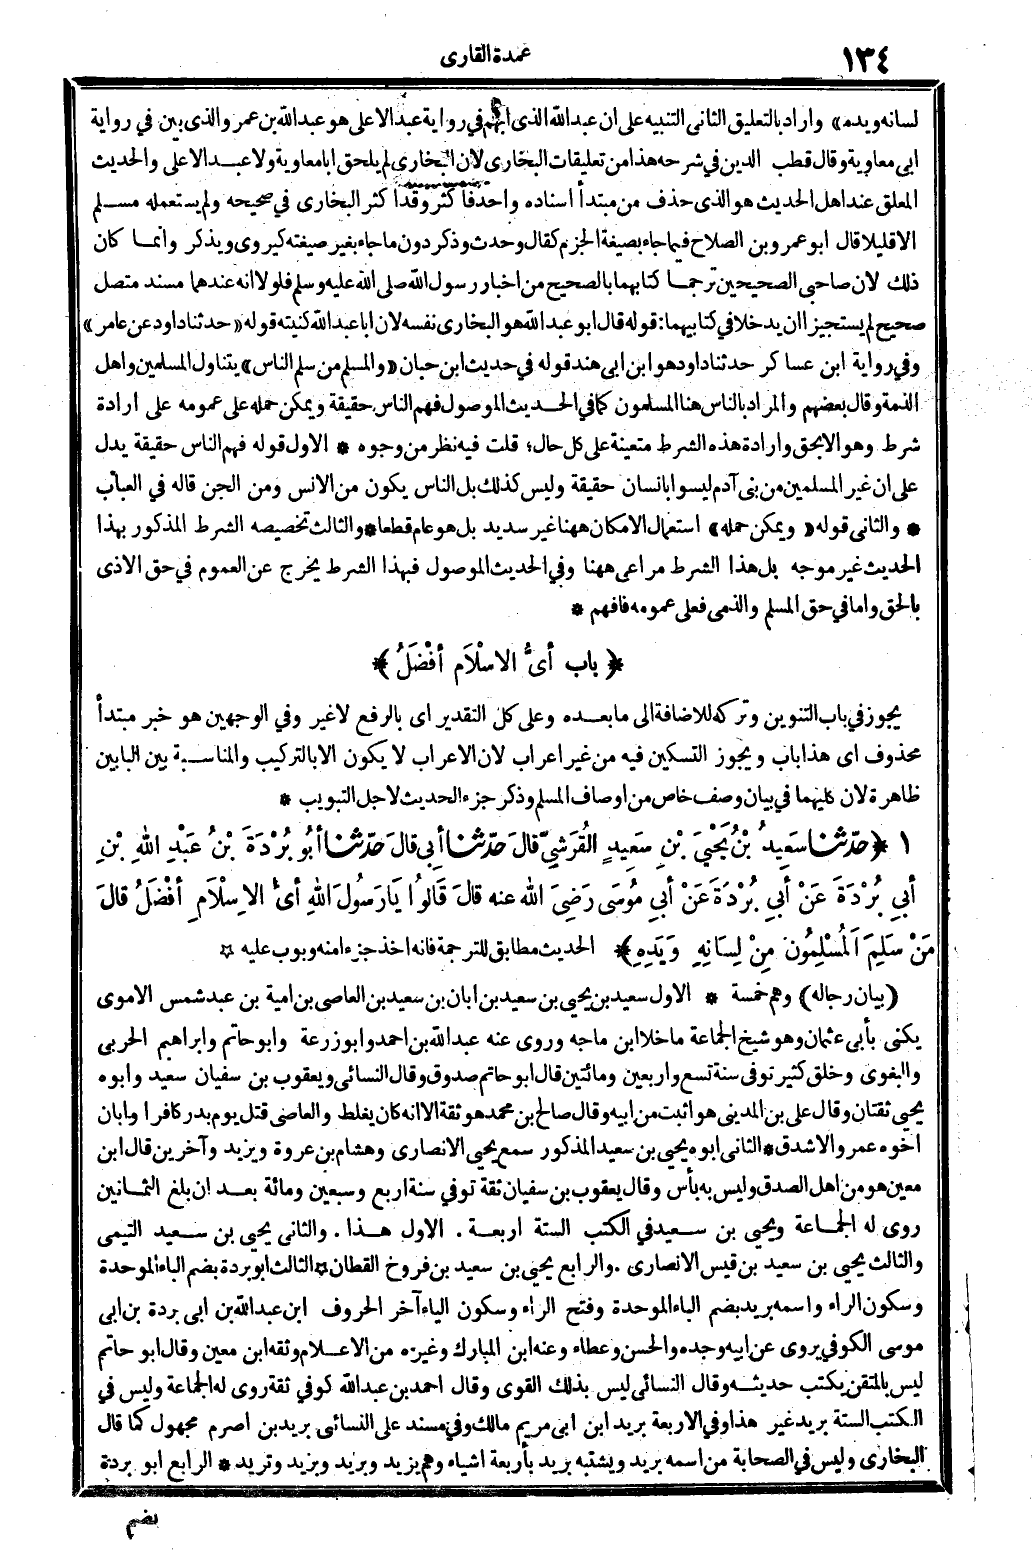 ١٣٤
عمدة القارى
لسانه ويده» واراد بالتعليق الثانى التنبيه على ان عبدالله الذى ابهم فى رواية عبدالاعلى هو عبدالله بن عمرو الذى بين فى رواية
ابى معاوية وقال قطب الدين فى شرحه هذا من تعليقات البخارى لان البخارى لم يلحق ابا معاوية ولا عبد الاعلى والحديث
المعلق عند اهل الحديث هو الذى حذف من مبتدأ اسناده واحد فأكثر وقد أكثر البخارى فى صحيحه ولم يستعمله مسلم
الا قليلا قال ابو عمرو بن الصلاح فيما جاء بصيغة الجزم كقال وحدث وذكر دون ما جاء بغير صيغته كيروى ويذكر وانما كان
ذلك لان صاحبى الصحيحين ترجما كتابهما بالصحيح من اخبار رسول الله صلى الله عليه وسلم فلولا انه عندهما مسند متصل
صحيح لم يستجيزا ان يدخلا فى كتابيهما: قوله قال ابو عبدالله هو البخارى نفسه لان ابا عبدالله كنيته قوله «حدثنا داود عن عامر»
وفى رواية ابن عساكر حدثنا داود هو ابن ابى هند قوله فى حديث ابن حبان «والمسلم من سلم الناس» يتناول المسلمين واهل
الذمة وقال بعضهم والمراد بالناس هنا المسلمون كما فى الحديث الموصول فهم الناس حقيقة ويمكن حمله على عمومه على ارادة
شرط وهو الا بحق وارادة هذه الشرط متعينة على كل حال؛ قلت فيه نظر من وجوه * الاول قوله فهم الناس حقيقة يدل
على ان غير المسلمين من بنى آدم ليسوا بانسان حقيقة وليس كذلك بل الناس يكون من الانس ومن الجن قاله فى العباب
* والثانى قوله «ويمكن حمله» استعمال الامكان ههنا غير سديد بل هو عام قطعا * والثالث تخصيصه الشرط المذكور بهذا
الحديث غير موجه بل هذا الشرط مراعى ههنا وفى الحديث الموصول فبهذا الشرط يخرج عن العموم فى حق الاذى
بالحق واما فى حق المسلم والذمى فعلى عمومه فافهم *
﴿ باب أىُّ الاسْلاَم أفْضَلُ ﴾
يجوز فى باب التنوين وتركه للاضافة الى ما بعده وعلى كل التقدير اى بالرفع لا غير وفى الوجهين هو خبر مبتدأ
محذوف اى هذا باب ويجوز التسكين فيه من غير اعراب لان الاعراب لا يكون الا بالتركيب والمناسبة بين البابين
ظاهرة لان كليهما فى بيان وصف خاص من اوصاف المسلم وذكر جزء الحديث لاجل التبويب *
١ ﴿ حدّثنا سَعِيدُ بْنُ يَحْيَى بْنِ سَعِيدٍ القُرَشِيّ قالَ حَدّثنا أبِى قالَ حَدّثنا أبُو بُرْدَةَ بْنُ عَبْدِ اللهِ بْنِ
أبِى بُرْدَةَ عَنْ أبِى بُرْدَةَ عَنْ أبِى مُوسَى رَضِىَ اللهُ عنه قالَ قَالُوا يَارَسُولَ اللهِ أىُّ الاِسْلاَمِ أفْضَلُ قالَ
مَنْ سَلِمَ الْمُسْلِمُونَ مِنْ لِسَانِهِ وَيَدِهِ ﴾ الحديث مطابق للترجمة فانه اخذ جزءا منه وبوب عليه *
(بيان رجاله) وهم خمسة * الاول سعيد بن يحيى بن سعيد بن ابان بن سعيد بن العاصى بن امية بن عبد شمس الاموى
يكنى بأبى عثمان وهو شيخ الجماعة ما خلا ابن ماجه وروى عنه عبدالله بن احمد وابو زرعة وابو حاتم وابراهيم الحربى
والبغوى وخلق كثير توفى سنة تسع واربعين ومائتين قال ابو حاتم صدوق وقال النسائى ويعقوب بن سفيان سعيد وابوه
يحيى ثقتان وقال على بن المدينى هو اثبت من ابيه وقال صالح بن محمد هو ثقة الا انه كان يغلط والعاصى قتل يوم بدر كافرا وابان
اخوه عمرو الاشدق * الثانى ابوه يحيى بن سعيد المذكور سمع يحيى الانصارى وهشام بن عروة ويزيد وآخرين قال ابن
معين هو من اهل الصدق وليس به بأس وقال يعقوب بن سفيان ثقة توفى سنة اربع وسبعين ومائة بعد ان بلغ الثمانين
روى له الجماعة ويحيى بن سعيد فى الكتب الستة اربعة . الاول هذا . والثانى يحيى بن سعيد التيمى
والثالث يحيى بن سعيد بن قيس الانصارى . والرابع يحيى بن سعيد بن فروخ القطان * الثالث ابو بردة بضم الباء الموحدة
وسكون الراء واسمه بريد بضم الباء الموحدة وفتح الراء وسكون الياء آخر الحروف ابن عبدالله بن ابى بردة بن ابى
موسى الكوفى يروى عن ابيه وجده والحسن وعطاء وعنه ابن المبارك وغيره من الاعلام وثقه ابن معين وقال ابو حاتم
ليس بالمتقن يكتب حديثه وقال النسائى ليس بذلك القوى وقال احمد بن عبدالله كوفى ثقة روى له الجماعة وليس فى
الكتب الستة بريد غير هذا وفى الاربعة بريد ابن ابى مريم مالك وفى مسند على النسائى بريد بن اصرم مجهول كما قال
البخارى وليس فى الصحابة من اسمه بريد ويشتبه بريد بأربعة اشياء وهم يزيد وبرند وبزيد وتزيد * الرابع ابو بردة
بضم